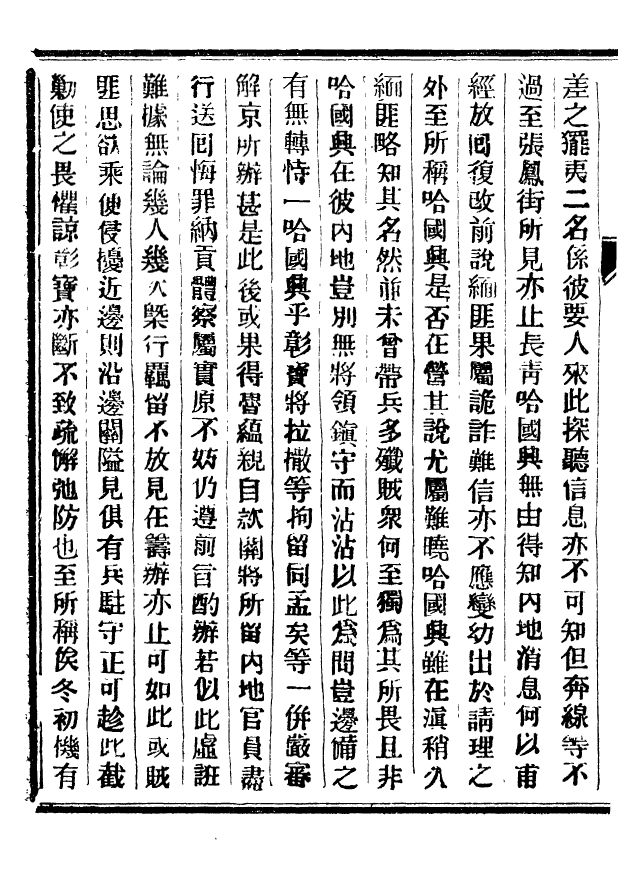 差之擺夷二名係彼要人來此探聽信息亦不可知但奔線等不
過至張鳳街所見亦止長靑哈國興無由得知內地消息何以甫
經放回復改前說緬匪果屬詭詐難信亦不應變幻出於請理之
外至所稱哈國興是否在營其說尤屬難曉哈國興雖在滇稍久
緬匪略知其名然並未曾帶兵多殲賊衆何至獨爲其所畏且非
哈國興在彼內地豈別無將領鎭守而沾沾以此爲問豈邊備之
有無轉恃一哈國興乎彰寶將拉撒等拘留同孟矣等一併嚴審
解京所辦甚是此後或果得魯蘊親自欵關將所留內地官員盡
行送回悔罪納貢體察屬實原不妨仍遵前旨酌辦若似此虛誑
難據無論幾人幾次槩行羈留不放見在籌辦亦止可如此或賊
匪思欲乘便侵擾近邊則沿邊關隘見俱有兵駐守正可趁此截
勦使之畏懼諒彰寶亦斷不致疏懈弛防也至所稱俟冬初機有